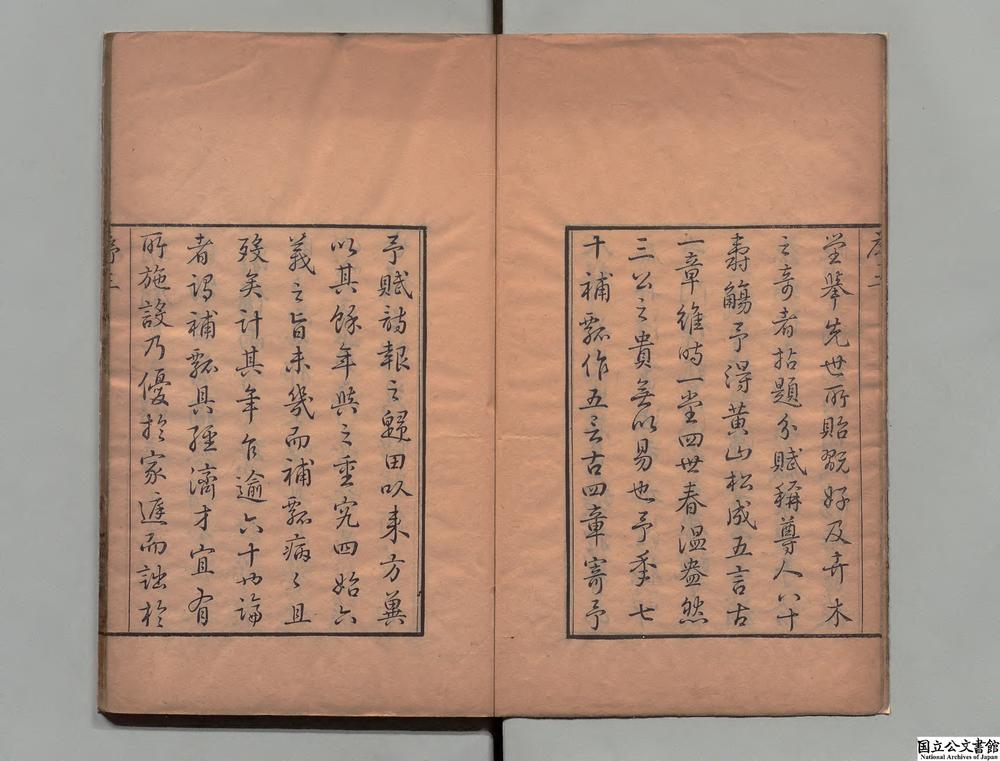 序二
堂舉先世所貽翫好及卉木
之奇者拈題分賦稱尊人八十
壽觴予得黃山松成五言古
一章維時一堂四世春溫盎然
三公之貴無以易也予年七
十補瓢作五言古四章寄予
予賦詩報之歸田以來方冀
以其餘年與之重究四始六
義之旨未幾而補瓢病病且
歿矣計其年乍逾六十也論
者謂補瓢具經濟才宜有
所施設乃優於家庭而詘於
序三
国立公文書館
National Archives of Japan